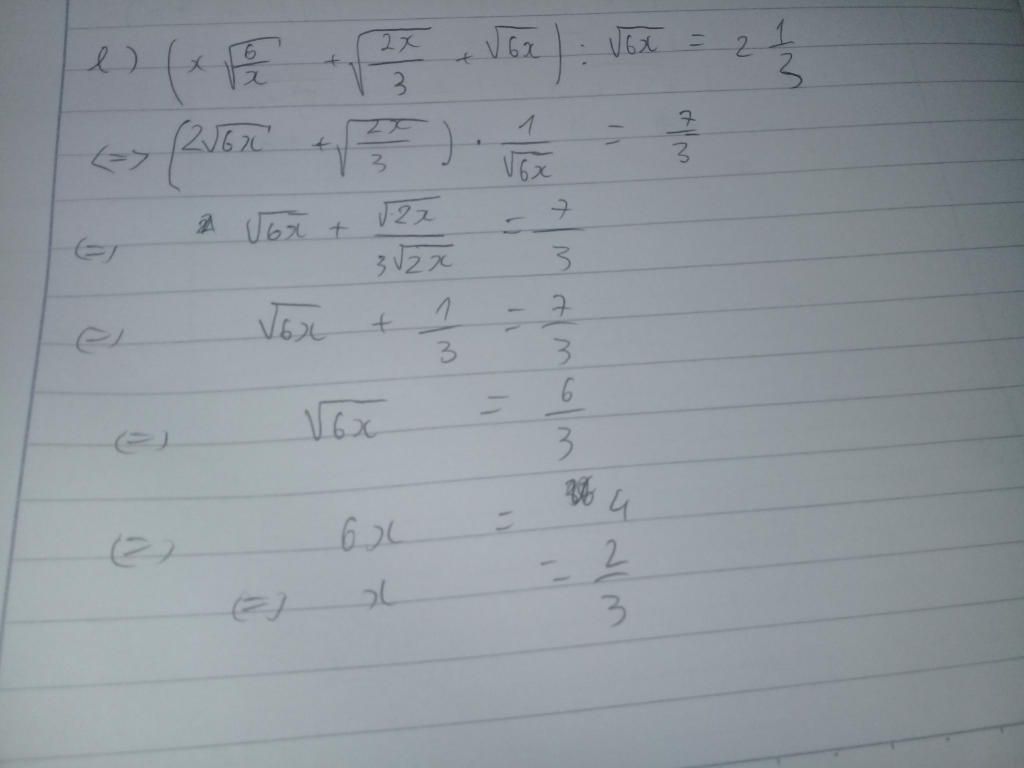 l) (x √(6/x) + √(2x/3) + √6x) : √6x = 2 1/3
<=> (2√6x + √(2x/3)) · 1/√6x = 7/3
(=) √6x + √2x/3√2x = 7/3
(=) √6x + 1/3 = 7/3
(=) √6x = 6/3
(=) 6x = 4
(=) x = 2/3